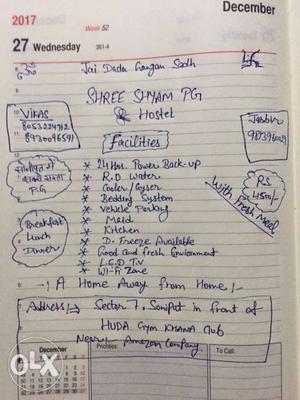 December
2017
Week 52
27 Wednesday
361-4
Jai Dada Gangan Sadh
SHREE SHYAM PG
& Hostel
VIKAS
8053224712
8930096591
Facilities
सोनीपत में
सबसे सस्ता
P.G
Breakfast
Lunch
Dinner
* 24 Hrs. Power Back-up
* R.O Water
* Cooler/Gyser
* Bedding System
* Vehicle Parking
* Maid
* Kitchen
* D. Freeze Available
* Good and fresh Environment
* L.E.D T.V
* Wi-Fi Zone
RS
4500/-
With Fresh Meal
-:| A Home Away from Home |:-
Address:→ Sector 7, Sonipat in front of
HUDA Gym KHANA Club
Near:- Amazon Company
December
Priorities:
To Call:
OLX